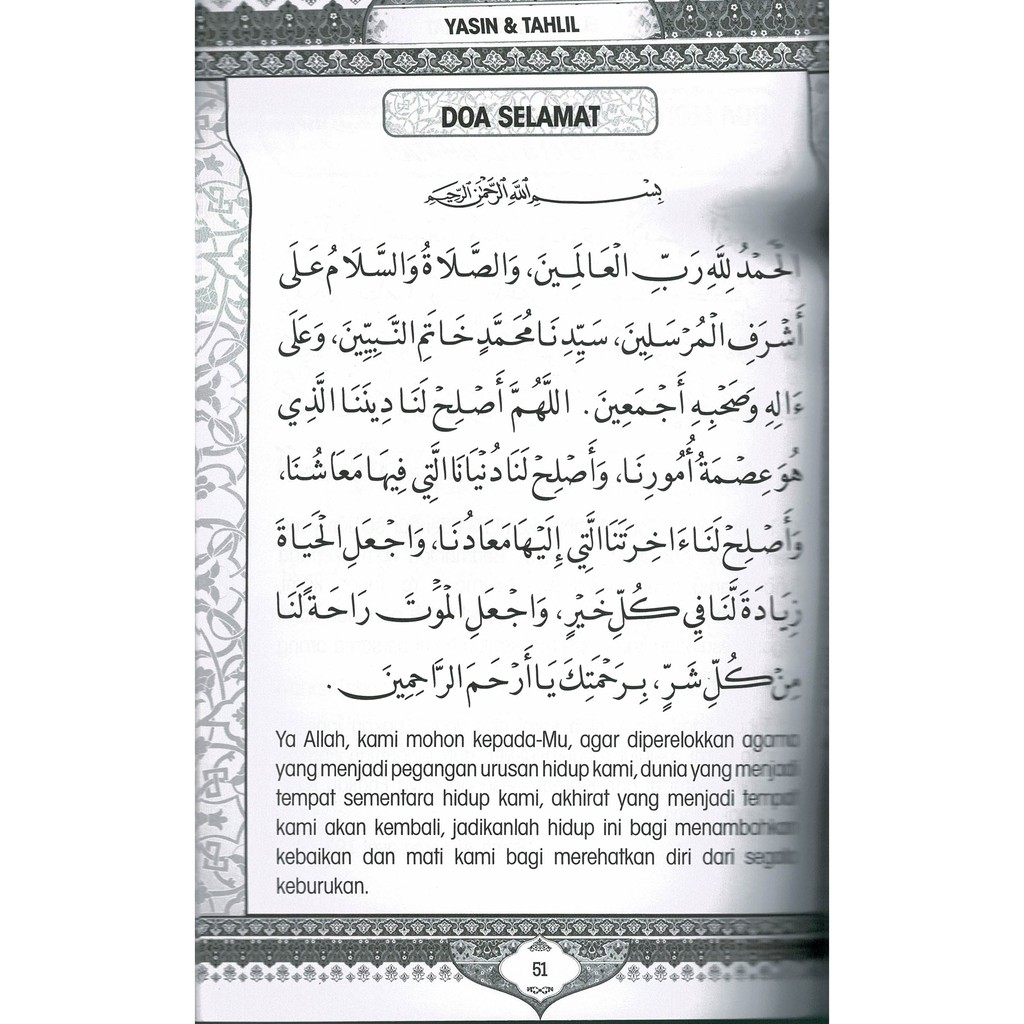 YASIN & TAHLIL
DOA SELAMAT
بِسْمِ اللَّهِ الرَّحْمَٰنِ الرَّحِيمِ
الْحَمْدُ لِلَّهِ رَبِّ الْعَالَمِينَ، وَالصَّلَاةُ وَالسَّلَامُ عَلَى
أَشْرَفِ الْمُرْسَلِينَ، سَيِّدِنَا مُحَمَّدٍ خَاتَمِ النَّبِيِّينَ، وَعَلَى
ءَالِهِ وَصَحْبِهِ أَجْمَعِينَ. اللَّهُمَّ أَصْلِحْ لَنَا دِينَنَا الَّذِي
هُوَ عِصْمَةُ أُمُورِنَا، وَأَصْلِحْ لَنَا دُنْيَانَا الَّتِي فِيهَا مَعَاشُنَا،
وَأَصْلِحْ لَنَا ءَاخِرَتَنَا الَّتِي إِلَيْهَا مَعَادُنَا، وَاجْعَلِ الْحَيَاةَ
زِيَادَةً لَّنَا فِي كُلِّ خَيْرٍ، وَاجْعَلِ الْمَوْتَ رَاحَةً لَّنَا
مِنْ كُلِّ شَرٍّ، بِرَحْمَتِكَ يَا أَرْحَمَ الرَّاحِمِينَ.
Ya Allah, kami mohon kepada-Mu, agar diperelokkan agama
yang menjadi pegangan urusan hidup kami, dunia yang menjadi
tempat sementara hidup kami, akhirat yang menjadi tempat
kami akan kembali, jadikanlah hidup ini bagi menambahkan
kebaikan dan mati kami bagi merehatkan diri dari segala
keburukan.
51